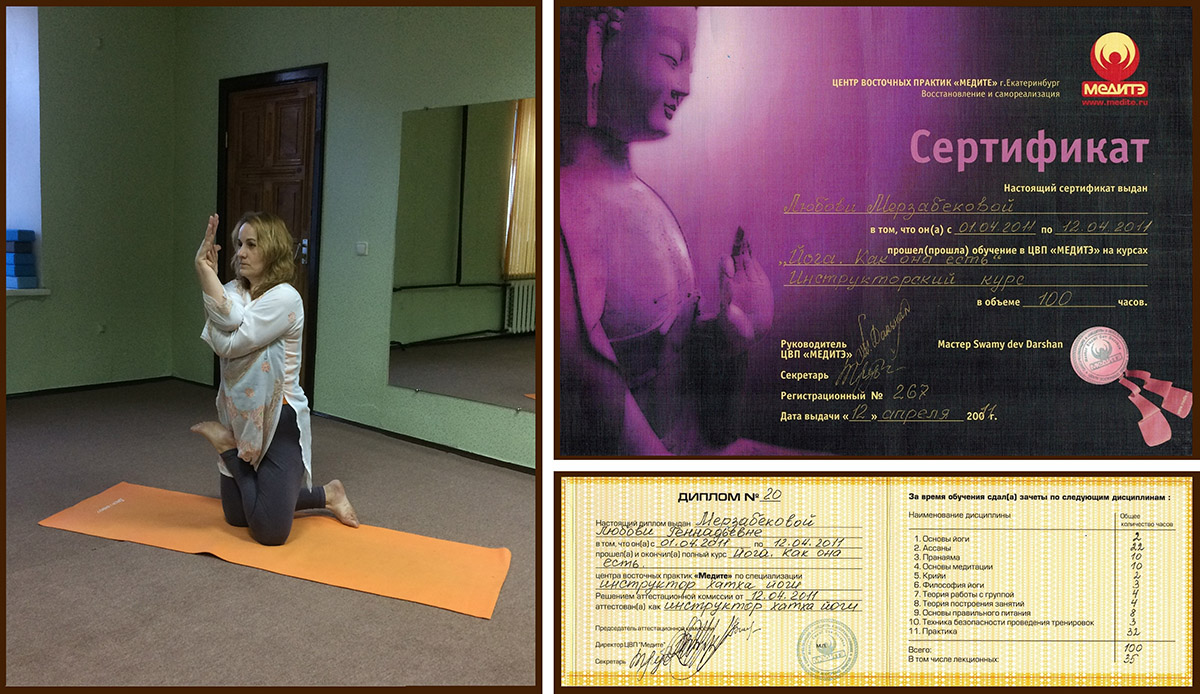 ЦЕНТР ВОСТОЧНЫХ ПРАКТИК «МЕДИТЕ» г.Екатеринбург
Восстановление и самореализация
МЕДИТЭ
www.medite.ru
Сертификат
Настоящий сертификат выдан
Любови Мерзабековой
в том, что он(а) с 01.04.2011 по 12.04.2011
прошел(прошла) обучение в ЦВП «МЕДИТЭ» на курсах
„Йога. Как она есть“
Инструкторский курс
в объеме 100 часов.
Руководитель
ЦВП «МЕДИТЭ»
Мастер Swamy dev Darshan
Секретарь
Регистрационный № 267
Дата выдачи «12» апреля 2011 г.
ДИПЛОМ № 20
Настоящий диплом выдан Мерзабековой
Любови Геннадьевне
в том, что он(а) с 01.04.2011 по 12.04.2011
прошел(а) и окончил(а) полный курс Йога. Как она
есть.
центра восточных практик «Медите» по специализации
инструктор хатха йоги
Решением аттестационной комиссии от 12.04.2011
аттестован(а) как инструктор хатха йоги
Председатель аттестационной комиссии
Директор ЦВП "Медите"
Секретарь
М.П.
За время обучения сдал(а) зачеты по следующим дисциплинам :
Наименование дисциплины Общее количество часов
1. Основы йоги 2
2. Ассаны 22
3. Пранаяма 10
4. Основы медитации 10
5. Крийи 2
6. Философия йоги 3
7. Теория работы с группой 4
8. Теория построения занятий 4
9. Основы правильного питания 8
10. Техника безопасности проведения тренировок 3
11. Практика 32
Всего: 100
В том числе лекционных: 35